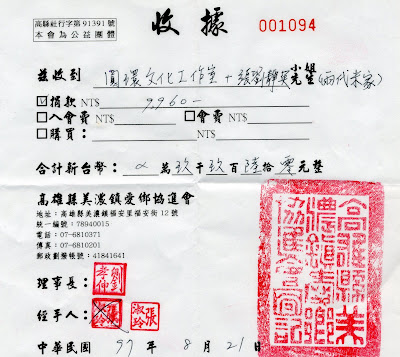 高縣社行字第91391號
本會為公益團體
收據
001094
茲收到 圓環文化工作室 + 張劉靜英 小姐 先生 (兩代米家)
☑捐款 NT$ 9,960-
□入會費 NT$ □會費 NT$
□購買: NT$
合計新台幣: α 萬 玖 千 玖 百 陸 拾 零 元整
高雄縣美濃鎮愛鄉協進會
地址:高雄縣美濃鎮福安里福安街12號
統一編號:78940015
電話:07-6810371
傳真:07-6810201
郵政劃撥帳號:41841641
高雄縣美濃鎮愛鄉協進會圖記
理事長: 劉孝伸
經手人: 張淑玲
中華民國 97 年 8 月 21 日